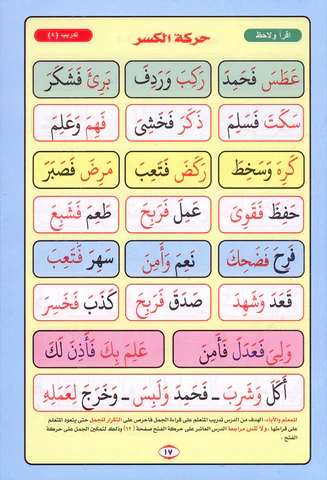 اقرأ ولاحظ
حركة الكسر
تدريب (٤)
عَطَسَ فَحَمِدَ رَكِبَ وَرَدِفَ بَرِئَ فَشَكَرَ
سَكَتَ فَسَلِمَ ذَكَرَ فَخَشِيَ فَهِمَ وَعَلِمَ
كَرِهَ وَسَخِطَ رَكَضَ فَتَعِبَ مَرِضَ فَصَبَرَ
حَفِظَ فَقَوِيَ عَمِلَ فَرَبِحَ طَعِمَ فَشَبِعَ
فَرِحَ فَضَحِكَ نَعِمَ وَأَمِنَ سَهِرَ فَتَعِبَ
قَعَدَ وَشَهِدَ صَدَقَ فَرَبِحَ كَذَبَ فَخَسِرَ
وَلِيَ فَعَدَلَ فَأَمِنَ عَلِمَ بِكَ فَأَذِنَ لَكَ
أَكَلَ وَشَرِبَ - فَحَمِدَ وَلَبِسَ - وَخَرَجَ لِعَمَلِهِ
للمعلم والآباء: الهدف من الدرس تدريب المتعلم على قراءة الجمل فاحرص على التكرار للجمل حتى يتعود المتعلم
على قراءتها، ولا تنس مراجعة الدرس العاشر على حركة الفتح صفحة (١٢) وذلك لتمكين الجمل على حركة
الفتح.
١٧